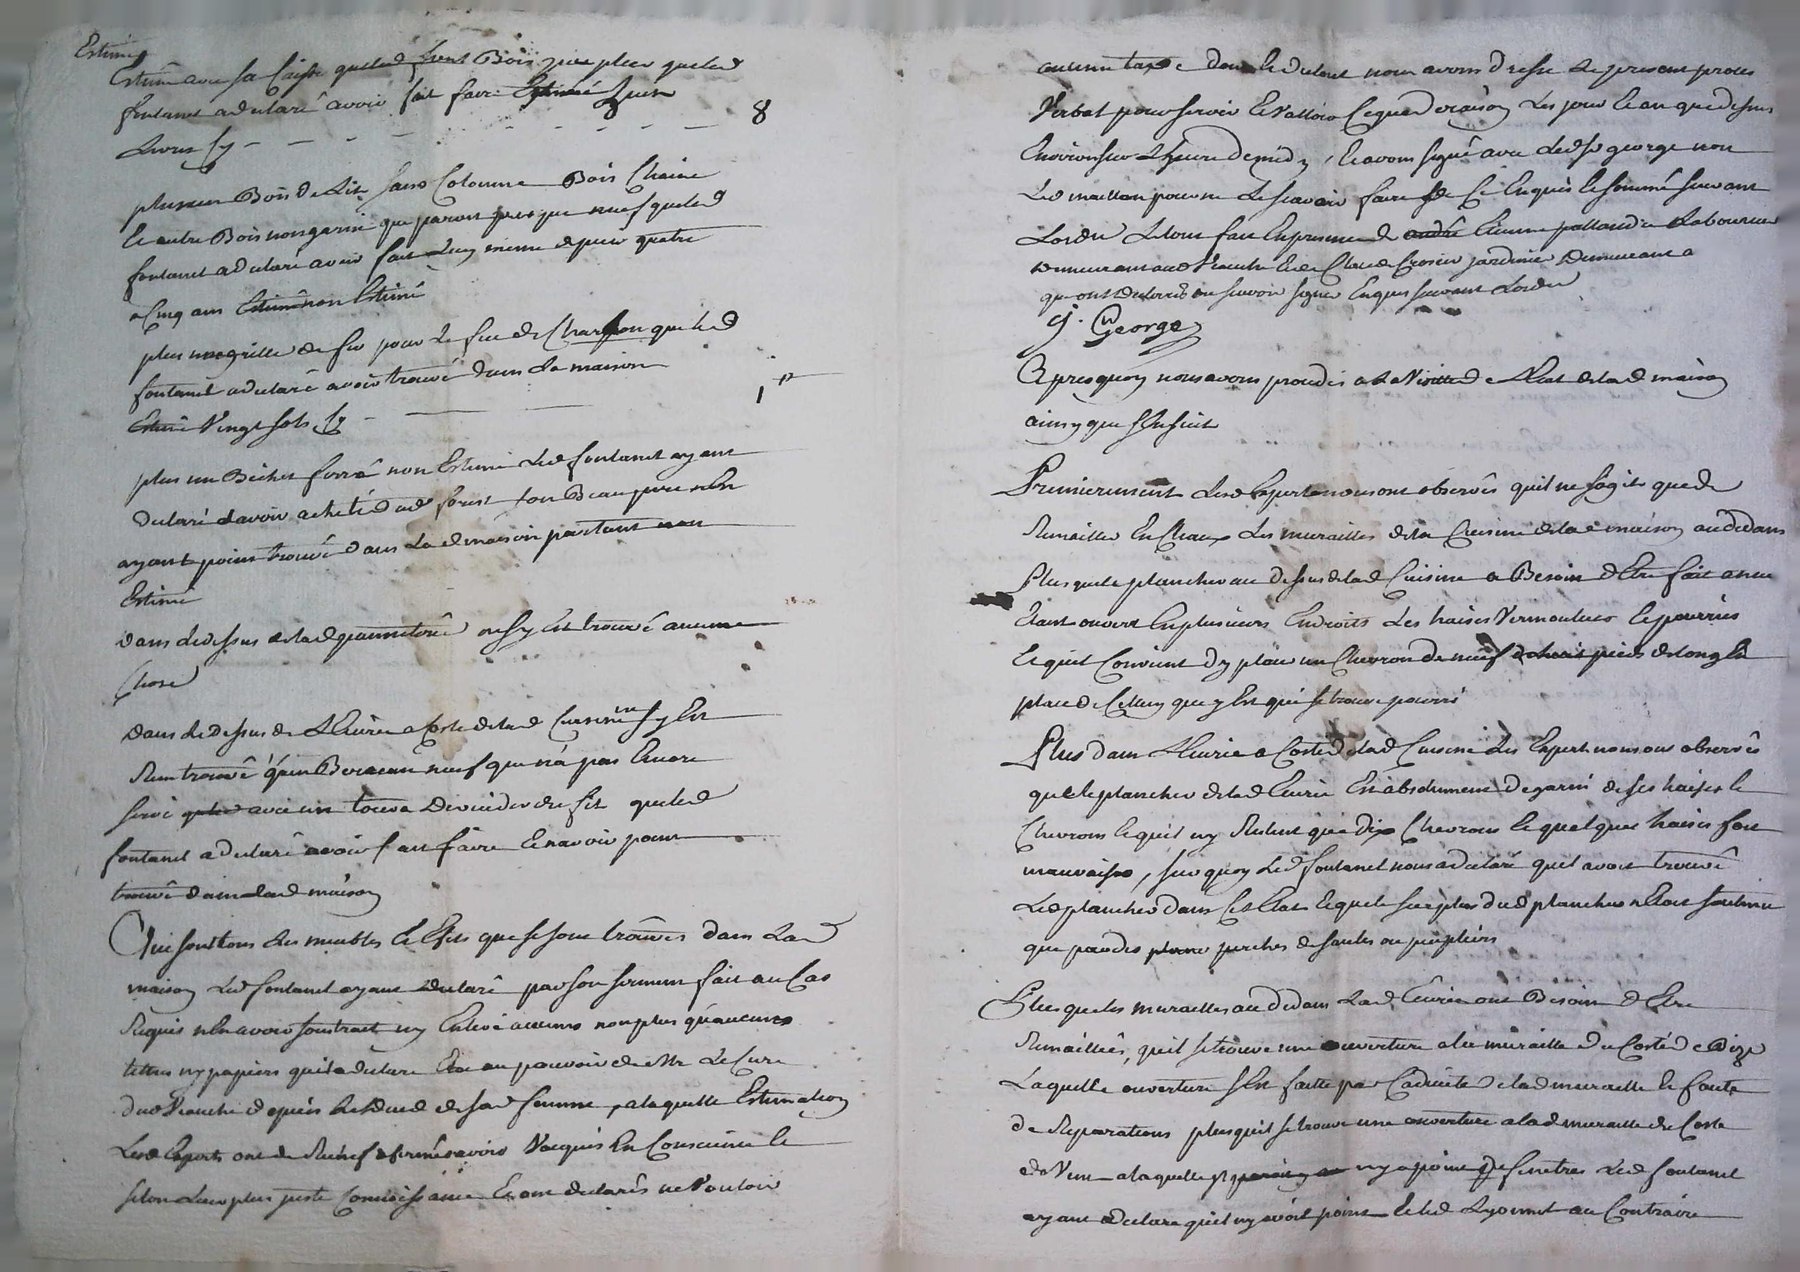 Estimé
Estimé avec sa Caisse quoled front Bois plus queled
fontanet a declaré avoir fait faire Estimé huit
Livres Cy - - - - - - - - 8
plus un Bois de Lit sans Colonne Bois Chaine
Et autre Bois non garni que paroit presque neuf queled
fontanet a declaré avoir fait Luy meme depuis quatre
a Cinq ans Estimé non Estimé
plus une grille de fer pour Le feu de Charbon queled
fontanet a declaré avoir trouvé dans La maison
Estimé Vingt sols Cy - 1 #
plus un Bichet ferré non Estimé Led fontanet ayant
declaré Lavoir acheté dud forest son Beau pere nEn
ayant point trouvé dans Lad maison partant non
Estimé
dans Ledessus de lad ne sy Est trouvé aucune
Chose
dans Le dessus de LEcurie a Costé de lad Cuisine ny Est
Rien trouvé qu'un Berceau neuf qui n'a pas Encore
servi avec un tour a devuider du fil queled
fontanet a declaré avoir fait faire Et n'avoir point
trouvé dans lad maison
Qui sont tous Les meubles Et Effets que se sont trouvés dans Lad
maison Led fontanet ayant declaré par son serment fait au Cas
Requis nEn avoir soustrait ny Enlevé aucuns non plus qu'aucuns
titres ny papiers quil a declaré Etre au pouvoir de Mr Le Cure
dud depuis Le deced de sad femme, a laquelle Estimation
Lesd Experts ont de Rechef affirmé avoir Vacqués En Conscience Et
selon Leur plus juste Connoissance Et ont declarés ne Vouloir
aucune taxe dont Et du tout nous avons dressé Le present proces
Verbal pour servir Et Valloir Ce que de raison Les jour Et an que dessus
Environ sur LheurE de midy, Et avons signé avec Led Sr george non
Led maillon pour ne Le scavoir faire de Ce Enquis Et sommé suivant
Lordre Le tout fait En presence de andré Etienne Laboureur
demeurant aud Et de Claude Crosier jardinier demeurant a
qui ont declarés ne scavoir signer Enquis suivant Lordre
J. George
Apres quoy nous avons procedés a La Visitte de LEtat de lad maison
ainsy que SEnsuit
Premierement Lesd Experts nous ont observés quil ne sagit que de
Remailler En Chaux Les murailles de la Cuisine de lad maison au dedans
Plus que Le plancher au dessus de lad Cuisine a Besoin dEtre fait a neuf
Etant ouvert En plusieurs Endroits Les haises Vermoulues Et pourries
Et quil Convient dy placer un Chevron de neuf pieds de long En
place de Celluy que y Est qui se trouve pourri
Plus dans LEcurie a Costé de lad Cuisine Les Experts nous ont observés
que Le plancher de lad Ecurie Est absolument degarni de ses haises Et
Chevrons Et quil ny Restent que dix Chevrons Et quelques haises fort
mauvaises, sur quoy Led fontanet nous a declaré quil avoit trouvé
Led plancher dans Cet Etat Et que Le surplus dud plancher nEtoit soutenu
que par des perches de saules ou peupliers
Plus que Les murailles au dedans Lad Ecurie ont Besoin dEtre
Remaillées, quil se trouve une ouverture a la muraille du Costé de Bize
Laquelle ouverture sEst faitte par Caducité de lad muraille Et faute
de Reparations plus quil se trouve une ouverture a lad muraille du Costé
de Vent a laquelle ny a point de fenetres Led fontanet
ayant declaré quil ny avoit point Et led Lyonnet au Contraire